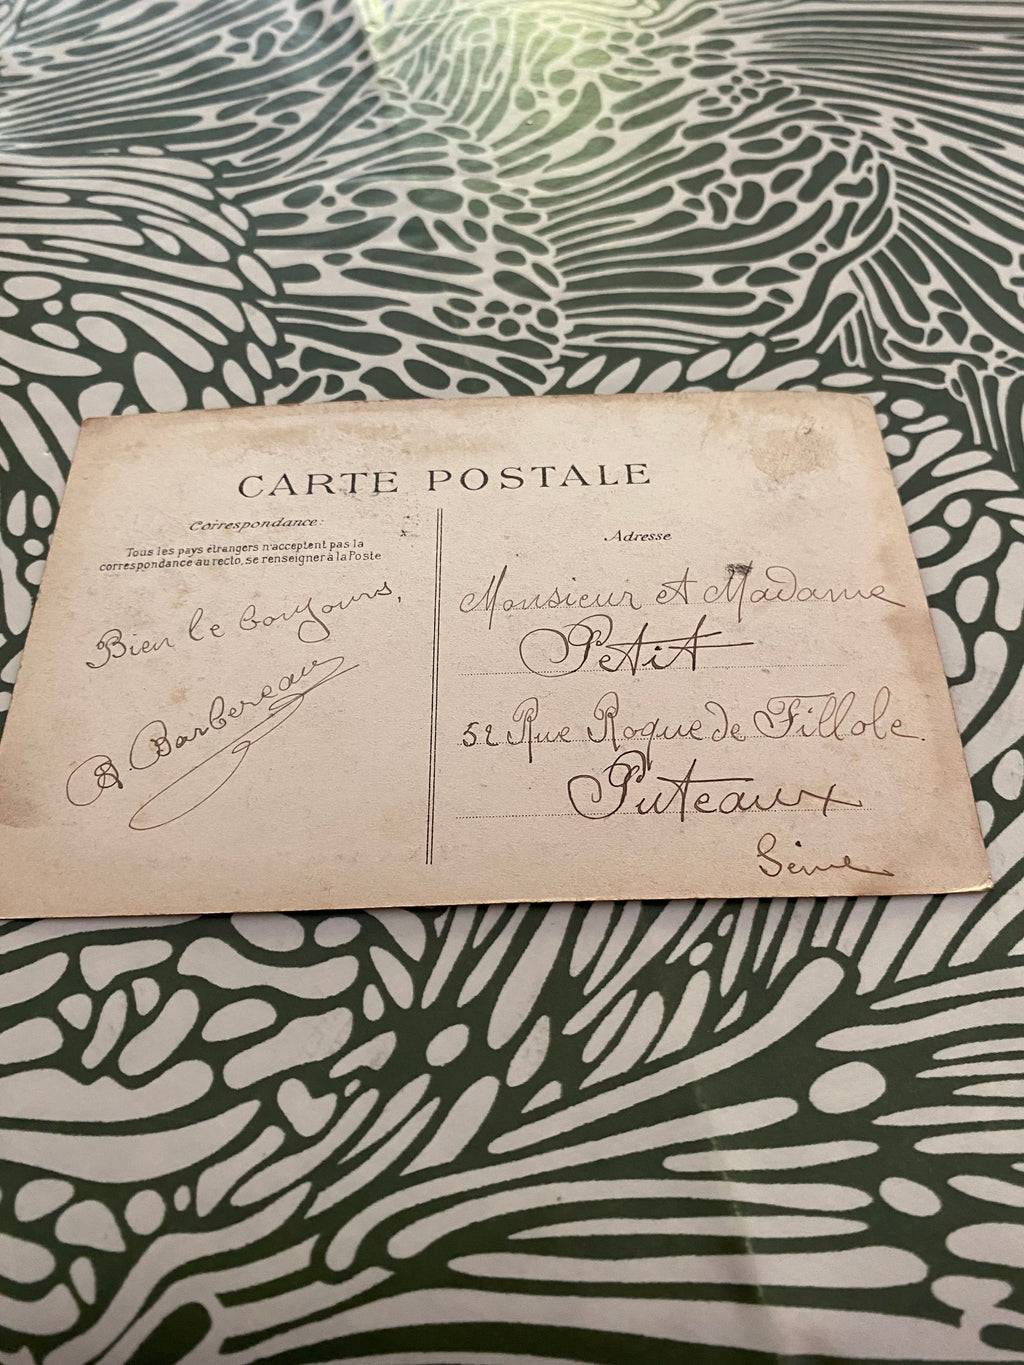 CARTE POSTALE
Correspondance:
Tous les pays étrangers n'acceptent pas la
correspondance au recto, se renseigner à la Poste
Bien le bonjours,
Barbereau
Adresse
Monsieur et Madame
Petit
52 Rue Roque de Fillole.
Puteaux
Seine